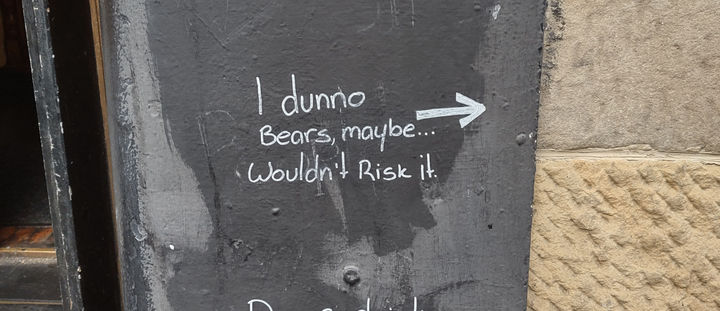 I dunno
Bears, maybe...
Wouldn't Risk it.